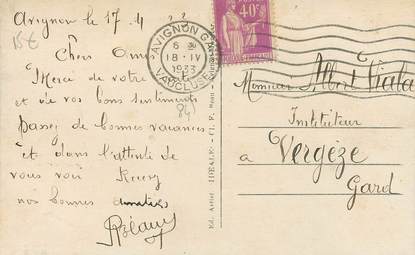 Avignon le 17 4
15€
Cher Ami
Merci de votre
et de vos bons sentiments
Passez de bonnes vacances
et dans l'attente de
vous voir Recevez
nos bonnes amitiés
AVIGNON GARE
6
18 · IV
1933
VAUCLUSE
40c
Monsieur Albert Viala
Instituteur
a Vergèze
Gard
Ed. Artist. IDEALE